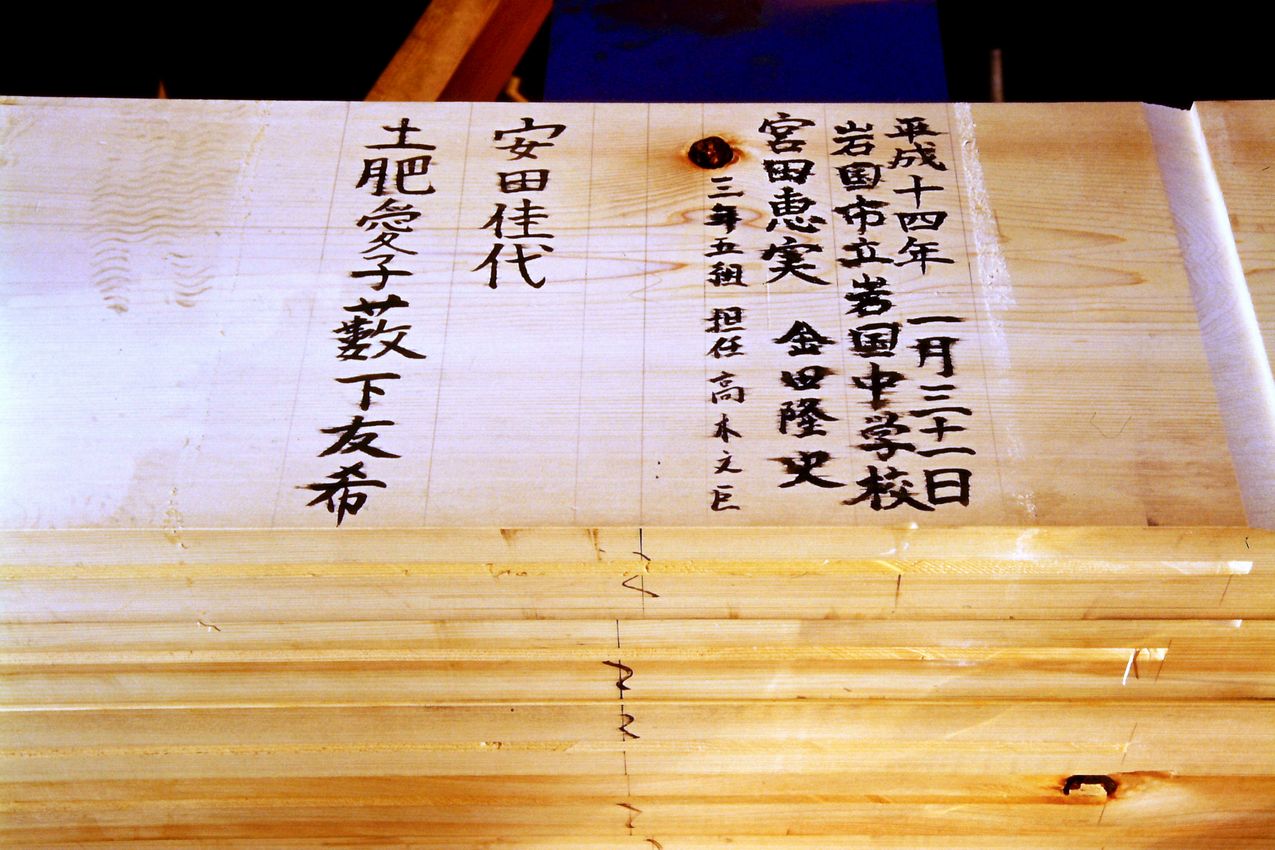 平成十四年 一月三十一日
岩国市立岩国中学校
宮田恵実 金田隆史
三年五組 担任 高木文臣
安田佳代
土肥愛子 薮下友希